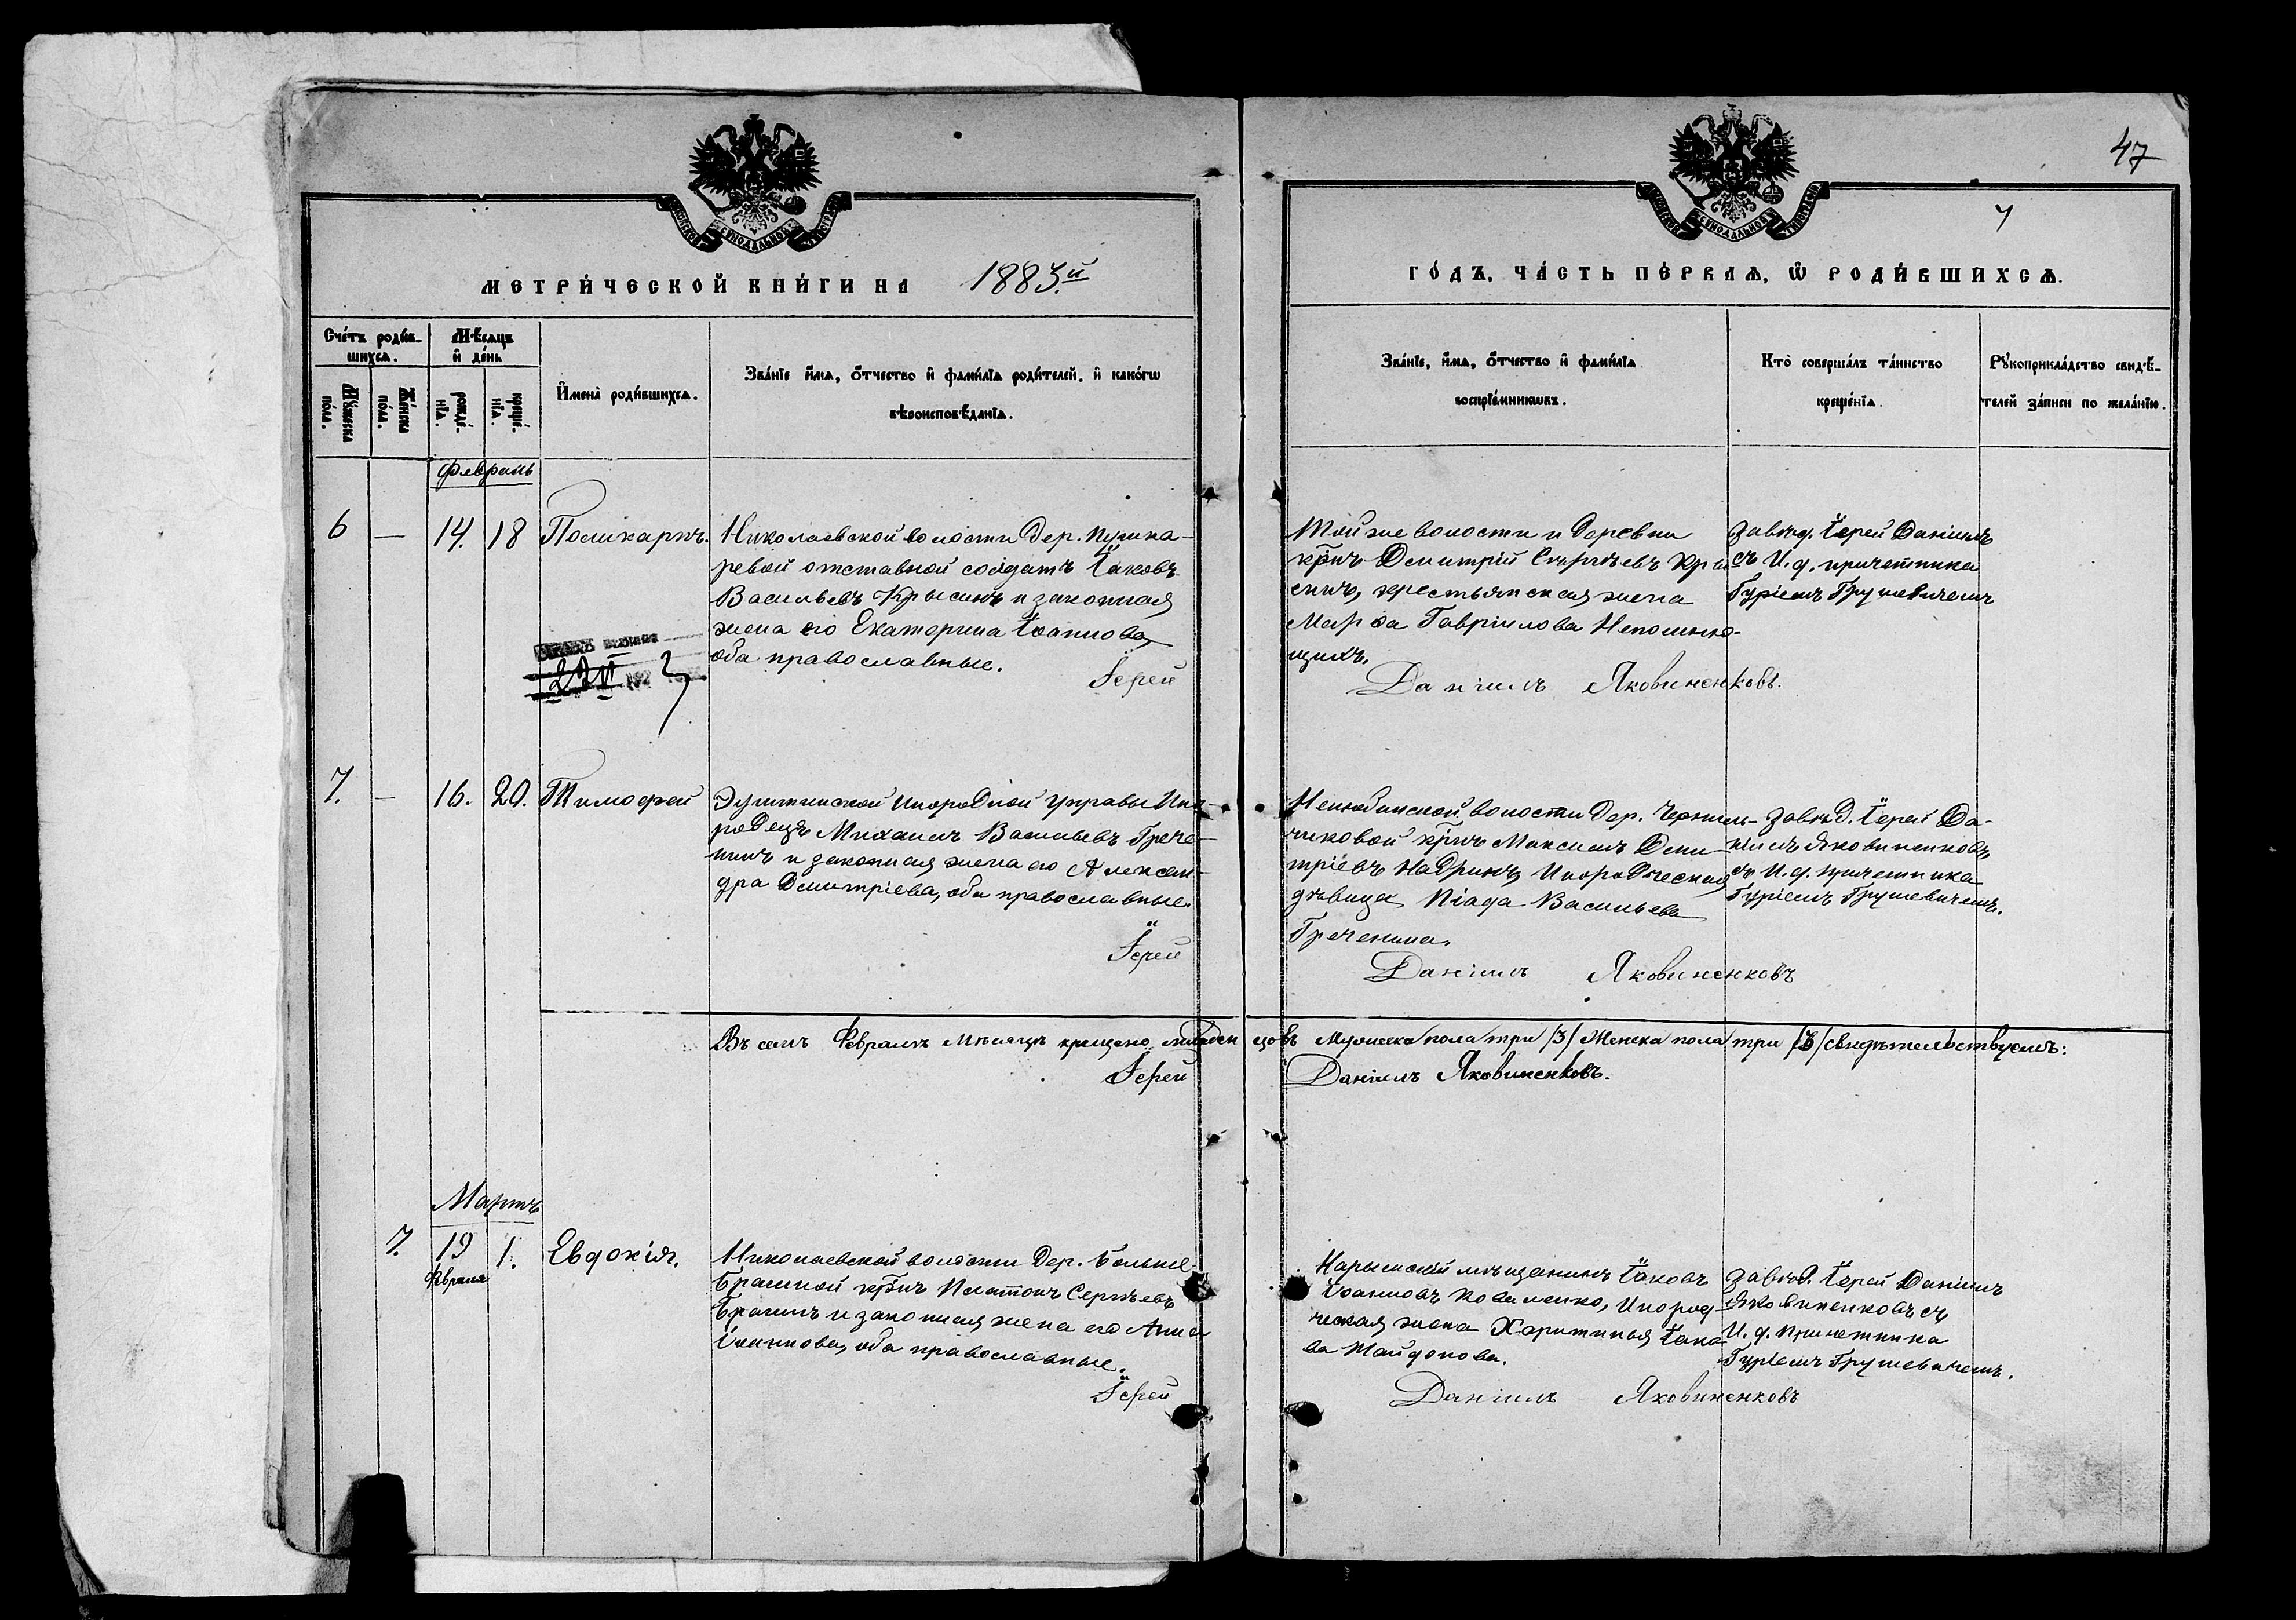 47
7
МЕТРИ́ЧЕСКОЙ КНИ́ГИ НА 1883.й
ГО́ДЪ, ЧА́СТЬ ПЕ́РВАѦ, Ѿ РОДИ́ВШИХСѦ.
Сче́тъ роди́в-
шихсѧ.
Мѣ́сѧцъ
и҆ де́нь
Мꙋ́жеска по́ла.
Же́нска по́ла.
рожде́-
нїѧ.
креще́-
нїѧ.
И҆мена̀ роди́вшихсѧ.
Зва́нїе и҆́мѧ, ѻ҆́тчество и҆ фами́лїѧ роди́телей, и҆ како́гѡ
вѣроисповѣ́данїѧ.
Зва́нїе, и҆́мѧ, ѻ҆́тчество и҆ фами́лїѧ
воспрїе́мникѡвъ.
Кто̀ соверша́лъ та́инство
креще́нїѧ.
Рꙋкоприкла́дство свидѣ́-
телей за́писи по жела́нїю.
Февраль
6 — 14. 18 Поликарпъ.
Николаевской волости дер. Пушка-
ревой отставной солдатъ Іаковъ
Васильевъ Крысинъ и законная
жена его Екатерина Іоаннова,
оба православные.
Іерей
Той же волости и деревни
кр̃нъ Димитрій Сергѣевъ Кры
синъ, крестьянская жена
Марѳа Гавріилова Непомню-
щихъ.
Даніилъ Яковиненковъ.
Завѣд. Іерей Даніилъ
съ И. д. причетника
Гуріемъ Грушевичемъ
7. — 16. 20. Тимофей
Инородной управы Ино-
родецъ Михаилъ Васильевъ Грече-
нинъ и законная жена его Алексан-
дра Димитріева, оба православные.
Іерей
Нелюбинской волости дер. Черниль-
чиковой кр̃нъ Максимъ Дими-
тріевъ Надринъ, Инородческая
дѣвица Піада Васильева
Греченина.
Даніилъ Яковиненковъ
Завѣд. Іерей Да-
ніилъ Яковиненковъ
съ И. д. причетника
Гуріемъ Грушевичемъ.
Въ семъ Февралѣ мѣсяцѣ крещено младенцовъ Мужеска пола три /3/ Женска пола три /3/ свидѣтельствуемъ:
Іерей Даніилъ Яковиненковъ.
Мартъ
7. 19 1. Евдокія.
Февраля
Николаевской волости дер. Больше-
Брагиной кр̃нъ Платонъ Сергѣевъ
Брагинъ и законная жена его Анна
Іоаннова, оба православные.
Іерей
Нарымскій мѣщанинъ Іаковъ
Іоанновъ Коваленко, Инород-
ческая жена Харитинья Іако-
ва Тайдонова.
Даніилъ Яковиненковъ
Завѣд. Іерей Даніилъ
Яковиненковъ съ
И. д. причетника
Гуріемъ Грушевичемъ.